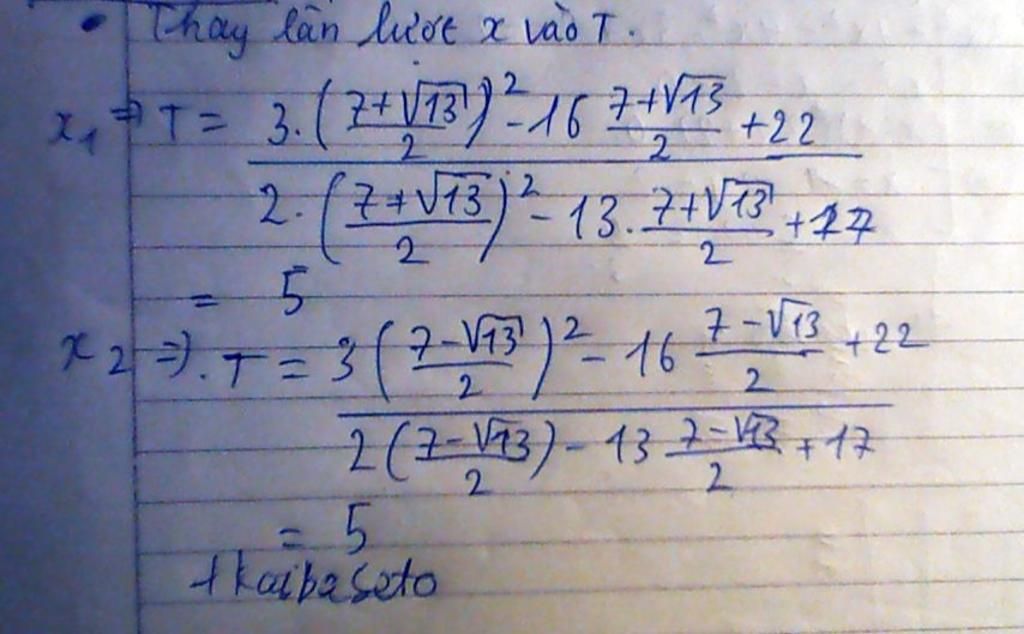 • Thay lần lượt x vào T.
x₁ ⇒ T = \frac{3.(\frac{7+√13}{2})² - 16 \frac{7+√13}{2} + 22}{2.(\frac{7+√13}{2})² - 13.\frac{7+√13}{2} + 17}
= 5
x₂ ⇒. T = \frac{3(\frac{7-√13}{2})² - 16 \frac{7-√13}{2} + 22}{2(\frac{7-√13}{2}) - 13 \frac{7-√13}{2} + 17}
= 5
+kaibaseto